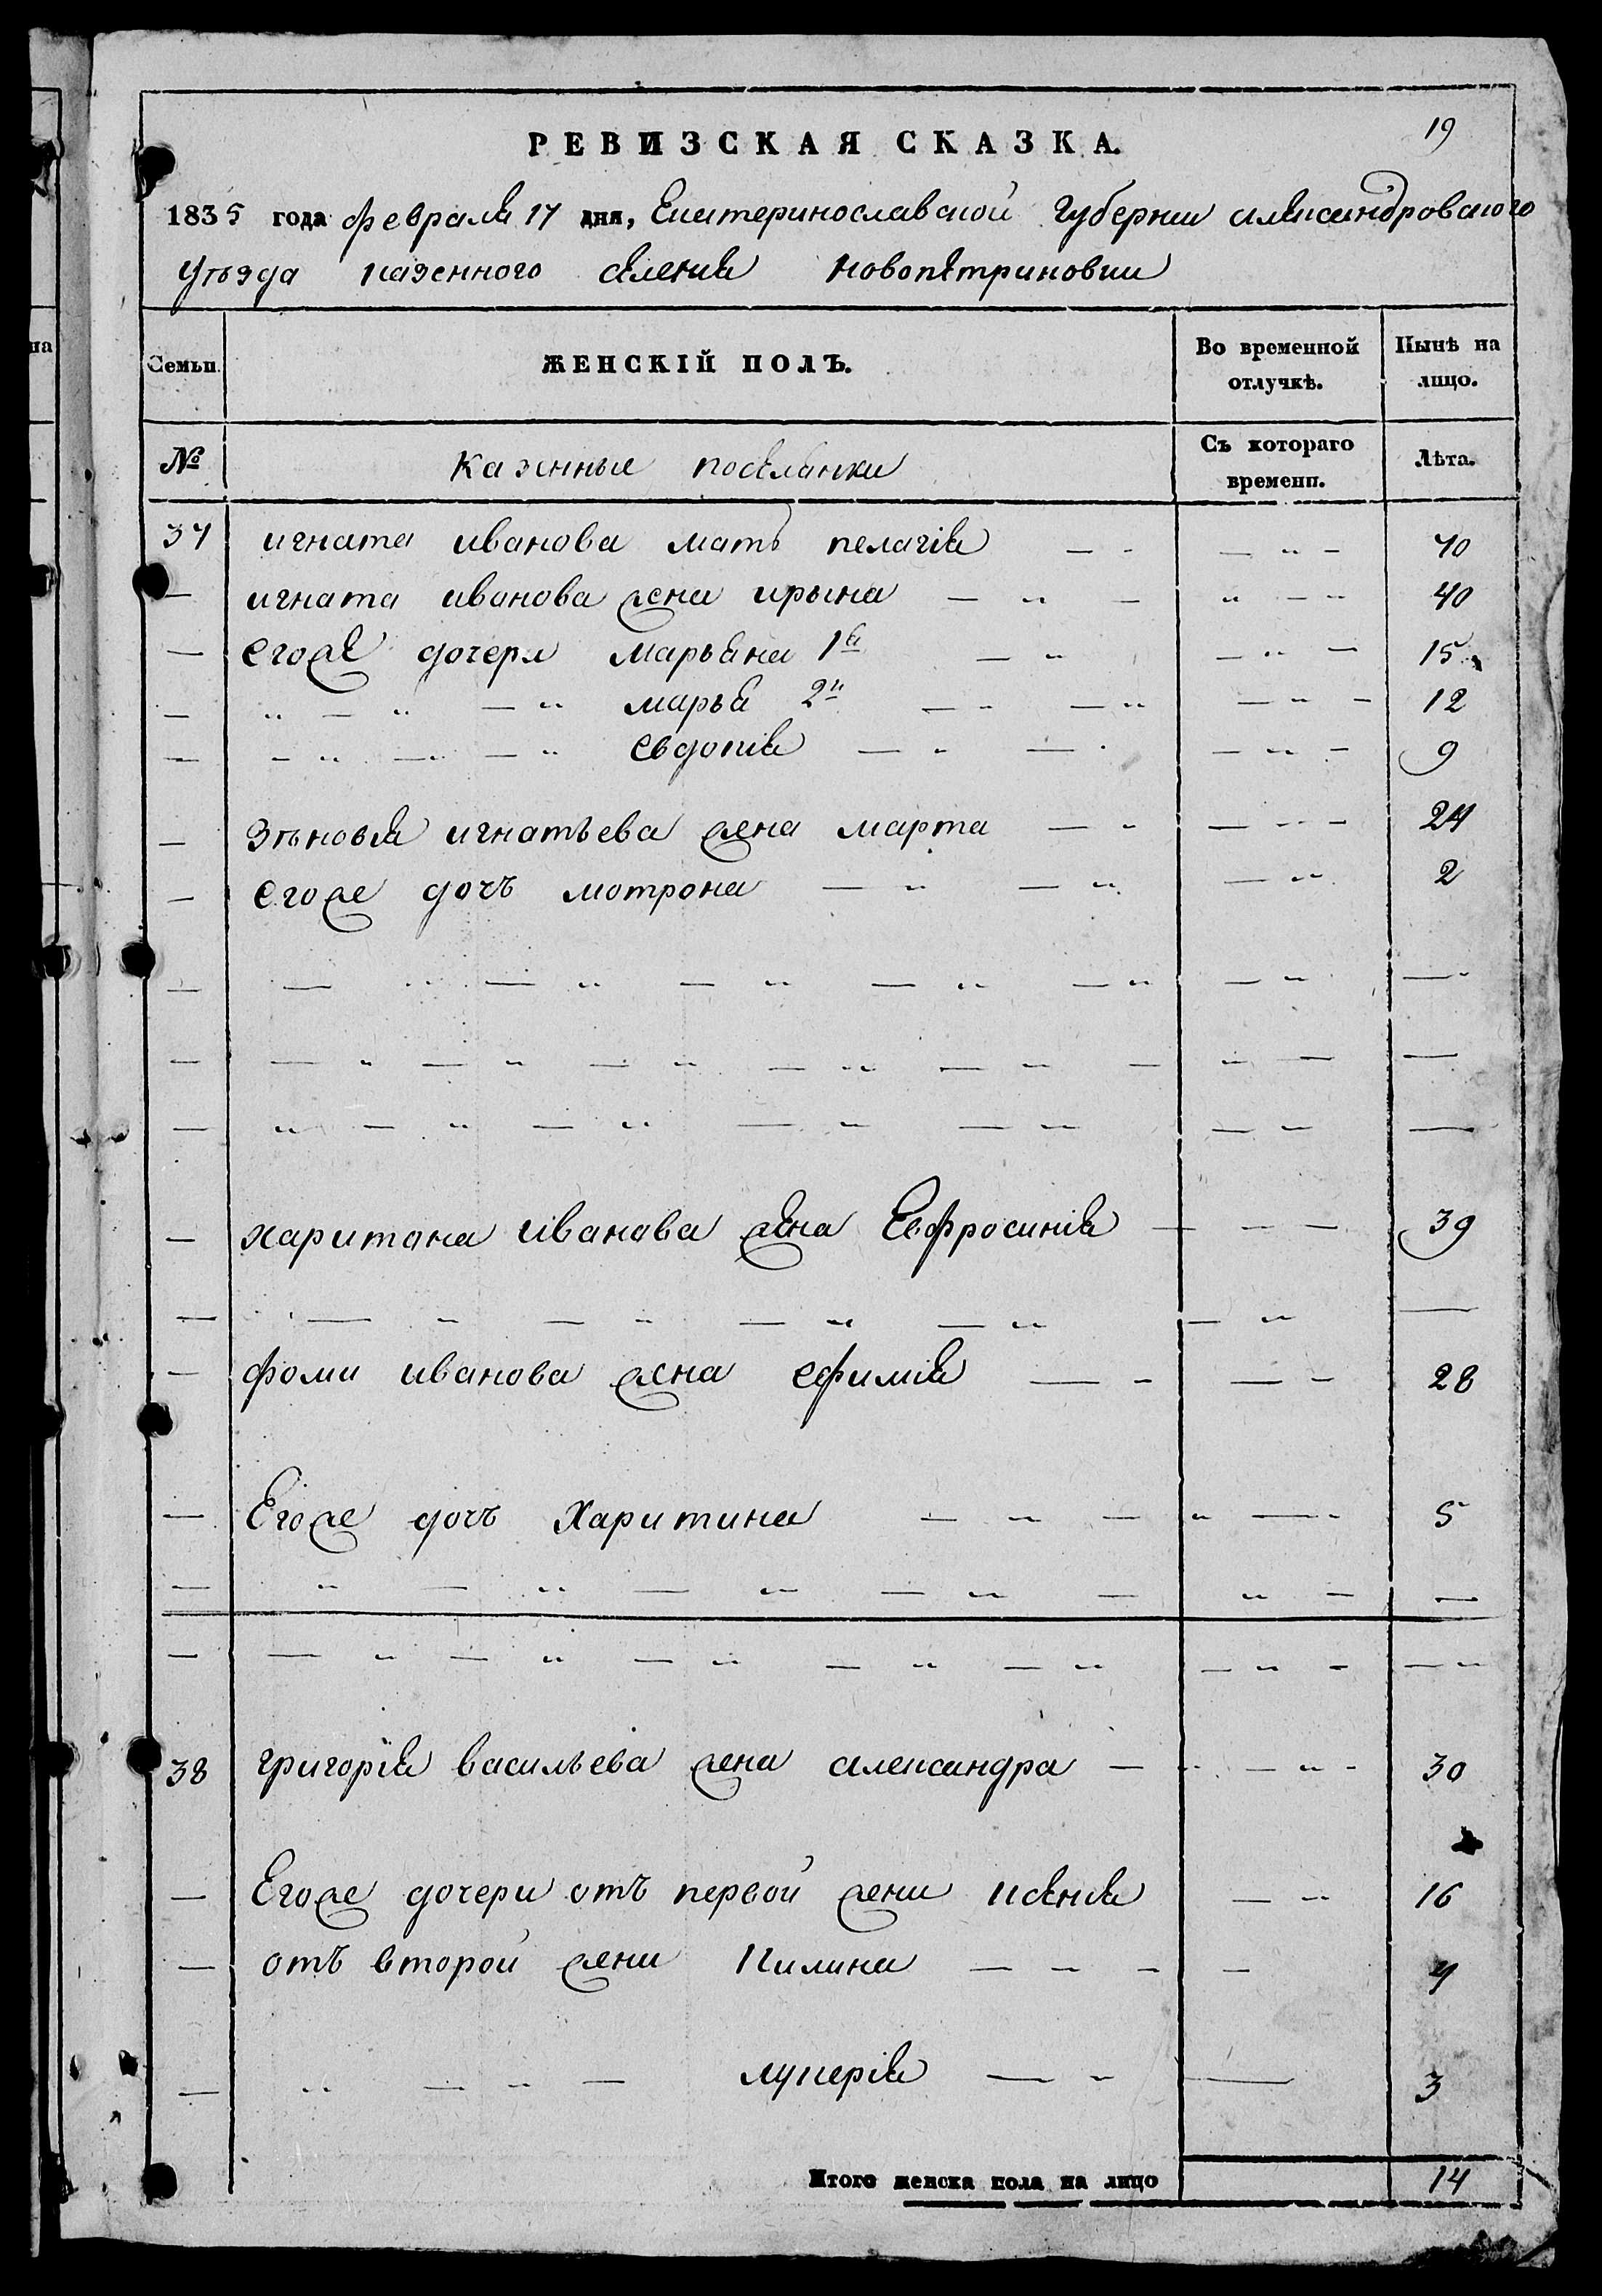 19
РЕВИЗСКАЯ СКАЗКА.
1835 года февраля 17 дня, Екатеринославской губернии александровского
уѣзда казенного селения новопетриковки
Семьи. ЖЕНСКІЙ ПОЛЪ. Во временной отлучкѣ. Нынѣ на лицо.
№ Казенные поселянки Съ котораго времени. Лѣта.
37 игната иванова мать пелагія — - — „ — 70
— игната иванова жена ирына — „ — „ — „ 40
— егоже дочери марьяна 1я — „ — „ — 15
— „ — „ — „ марья 2я — „ — „ — „ — 12
— - „ — — „ евдокія — „ — - — „ — 9
— зѣновія игнатьева жена марта — - — - — 24
— егоже дочъ мотрона — „ — „ — „ 2
— — „ — „ — „ — „ — „ — „ —
— — „ — „ — „ — „ — „ — „ — —
— „ — „ — „ — „ — „ — „ —
— харитона иванова жена Евфросинія — - — 39
— — „ — „ — „ — „ — „ —
— фоми иванова жена ефимія — - — - 28
— Егоже дочъ Харитина — „ — „ — 5
— „ — „ — „ — „ — „ — —
— — „ — „ — „ — „ — „ — „ — — „
38 григорія васильева жена александра — „ — „ - 30
— Егоже дочери отъ первой жени ксенія — „ 16
— отъ второй жени Килина — - — — 4
— „ — „ — лукерія — - — 3
Итого женска пола на лицо 14